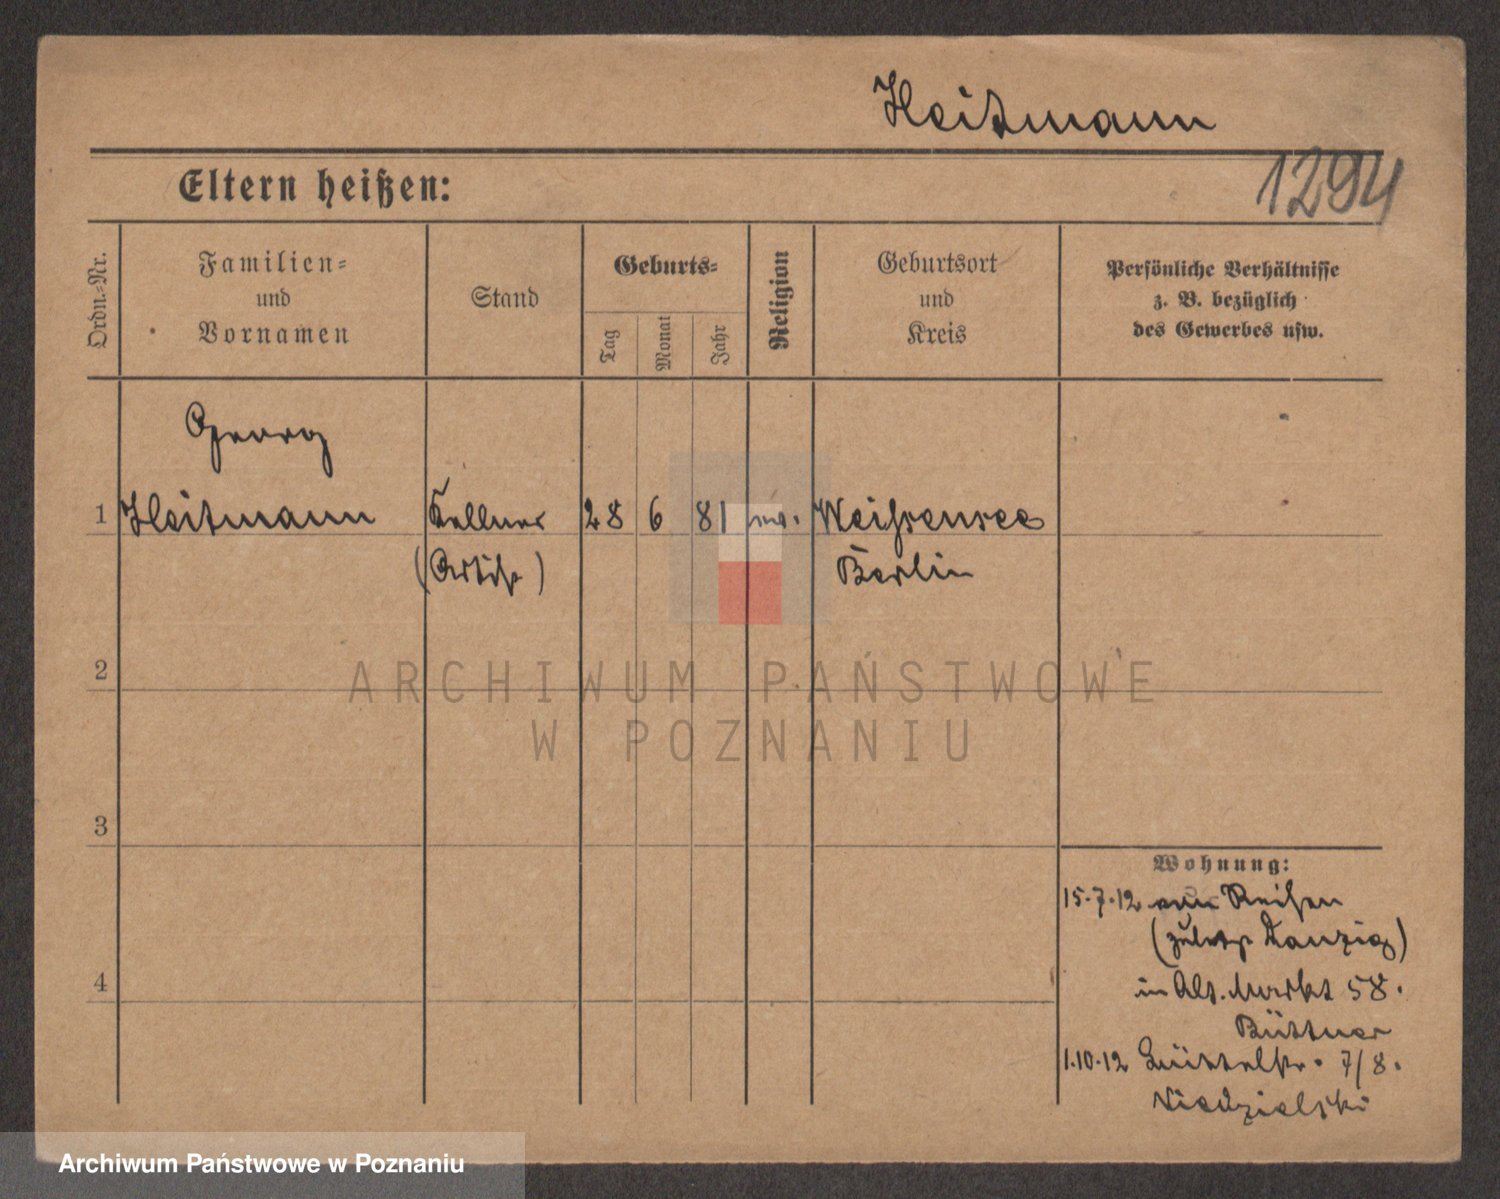 Heitmann
Eltern heißen:
1294
Ordn.-Nr.
Familien-
und
Vornamen
Stand
Geburts-
Tag
Monat
Jahr
Religion
Geburtsort
und
Kreis
Persönliche Verhältnisse
z. B. bezüglich
des Gewerbes usw.
Georg
1 Heitmann Kellner 28 6 81 ev. Weissensee
(Artist) Berlin
2
3
4
Wohnung:
15.7.12 von Reisen
(zuletzt Danzig)
in Alt. Markt 58.
Büttner
1.10.12 Büttelstr. 7/8.
Niedzielski
ARCHIWUM PAŃSTWOWE
W POZNANIU
Archiwum Państwowe w Poznaniu